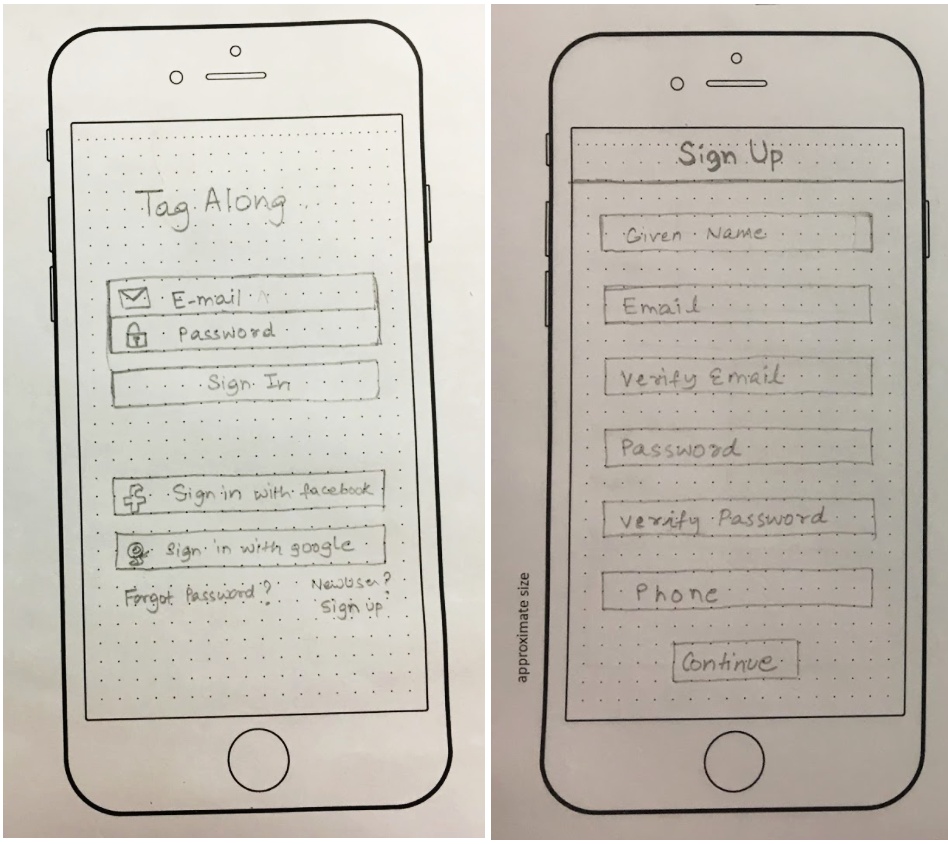 Tag Along
E-mail
Password
Sign In
Sign in with facebook
Sign in with google
Forgot Password?
New User?
Sign up
Sign Up
Given Name
Email
Verify Email
Password
Verify Password
Phone
Continue
approximate size